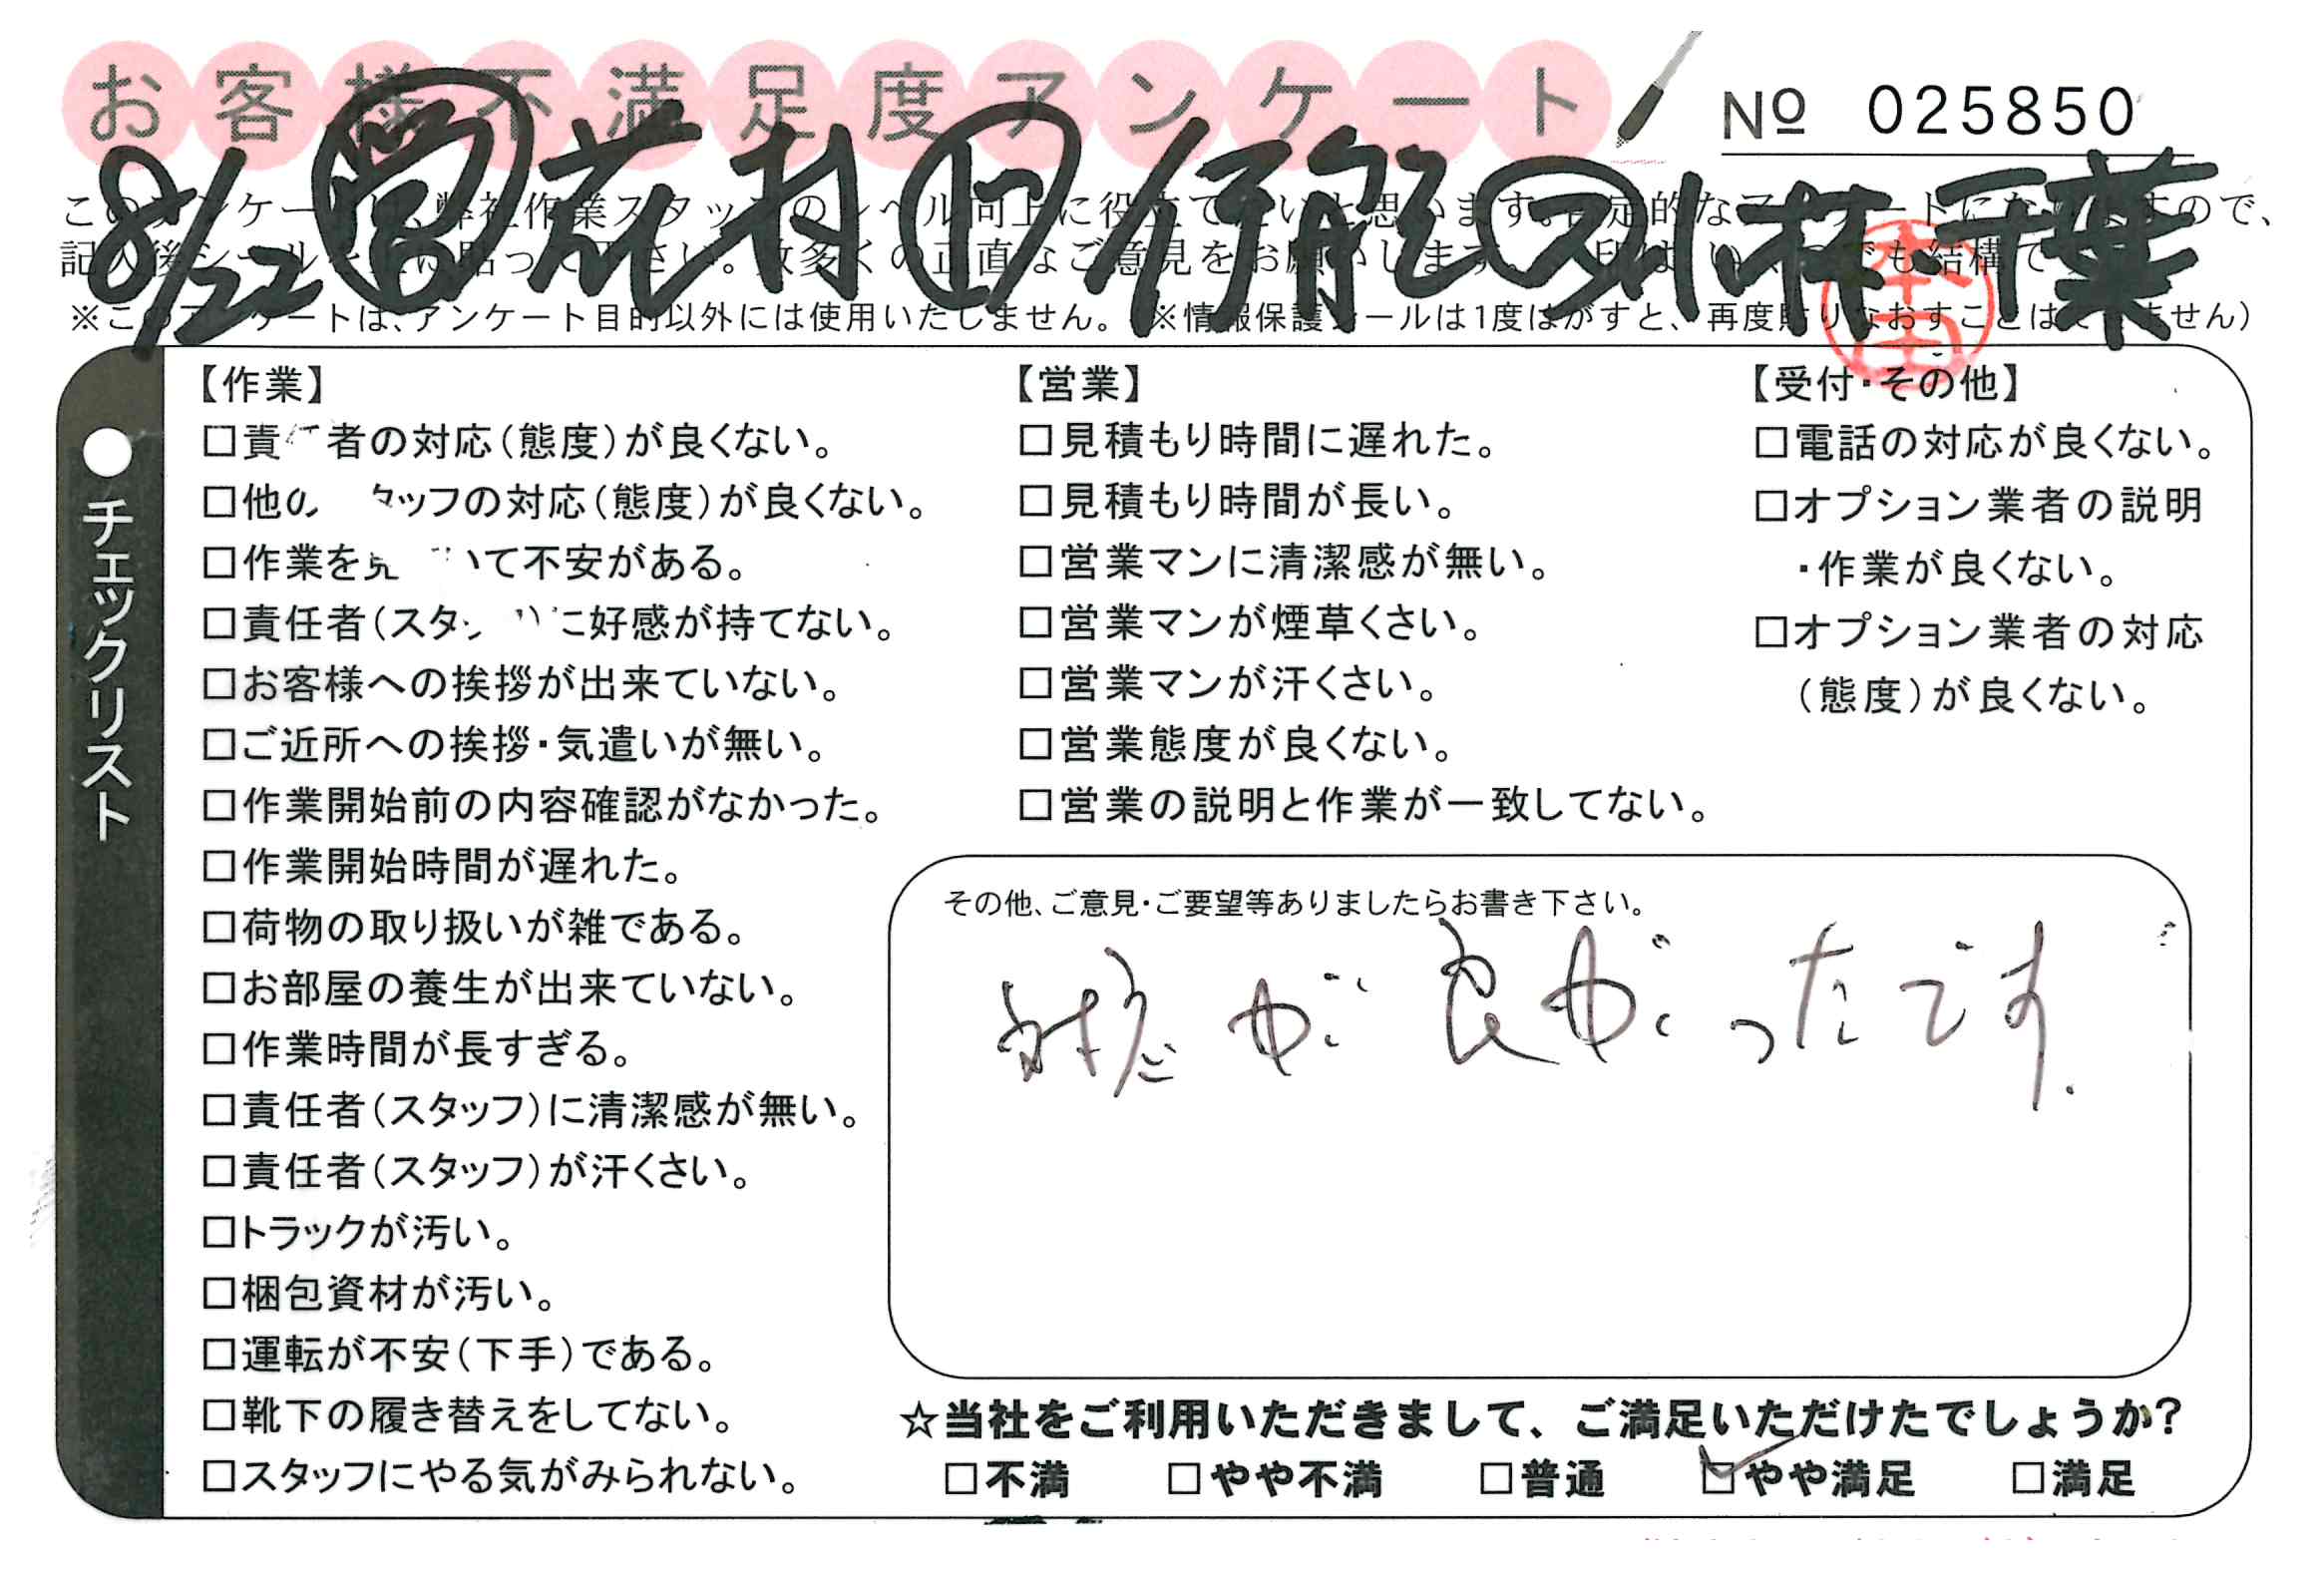 お客様不満足度アンケート
№ 025850
8/22 営 花村 伊能 ス 小林 千葉
※このアンケートは、アンケート目的以外には使用いたしません。(※情報保護シールは1度はがすと、再度貼りなおすことはできません)
本田
チェックリスト
【作業】
□責 者の対応(態度)が良くない。
□他の タッフの対応(態度)が良くない。
□作業を見 いて不安がある。
□責任者(スタッ に好感が持てない。
□お客様への挨拶が出来ていない。
□ご近所への挨拶・気遣いが無い。
□作業開始前の内容確認がなかった。
□作業開始時間が遅れた。
□荷物の取り扱いが雑である。
□お部屋の養生が出来ていない。
□作業時間が長すぎる。
□責任者(スタッフ)に清潔感が無い。
□責任者(スタッフ)が汗くさい。
□トラックが汚い。
□梱包資材が汚い。
□運転が不安(下手)である。
□靴下の履き替えをしてない。
□スタッフにやる気がみられない。
【営業】
□見積もり時間に遅れた。
□見積もり時間が長い。
□営業マンに清潔感が無い。
□営業マンが煙草くさい。
□営業マンが汗くさい。
□営業態度が良くない。
□営業の説明と作業が一致してない。
【受付・その他】
□電話の対応が良くない。
□オプション業者の説明
・作業が良くない。
□オプション業者の対応
(態度)が良くない。
その他、ご意見・ご要望等ありましたらお書き下さい。
が良かったです.
☆当社をご利用いただきまして、ご満足いただけたでしょうか?
□不満 □やや不満 □普通 ☑やや満足 □満足